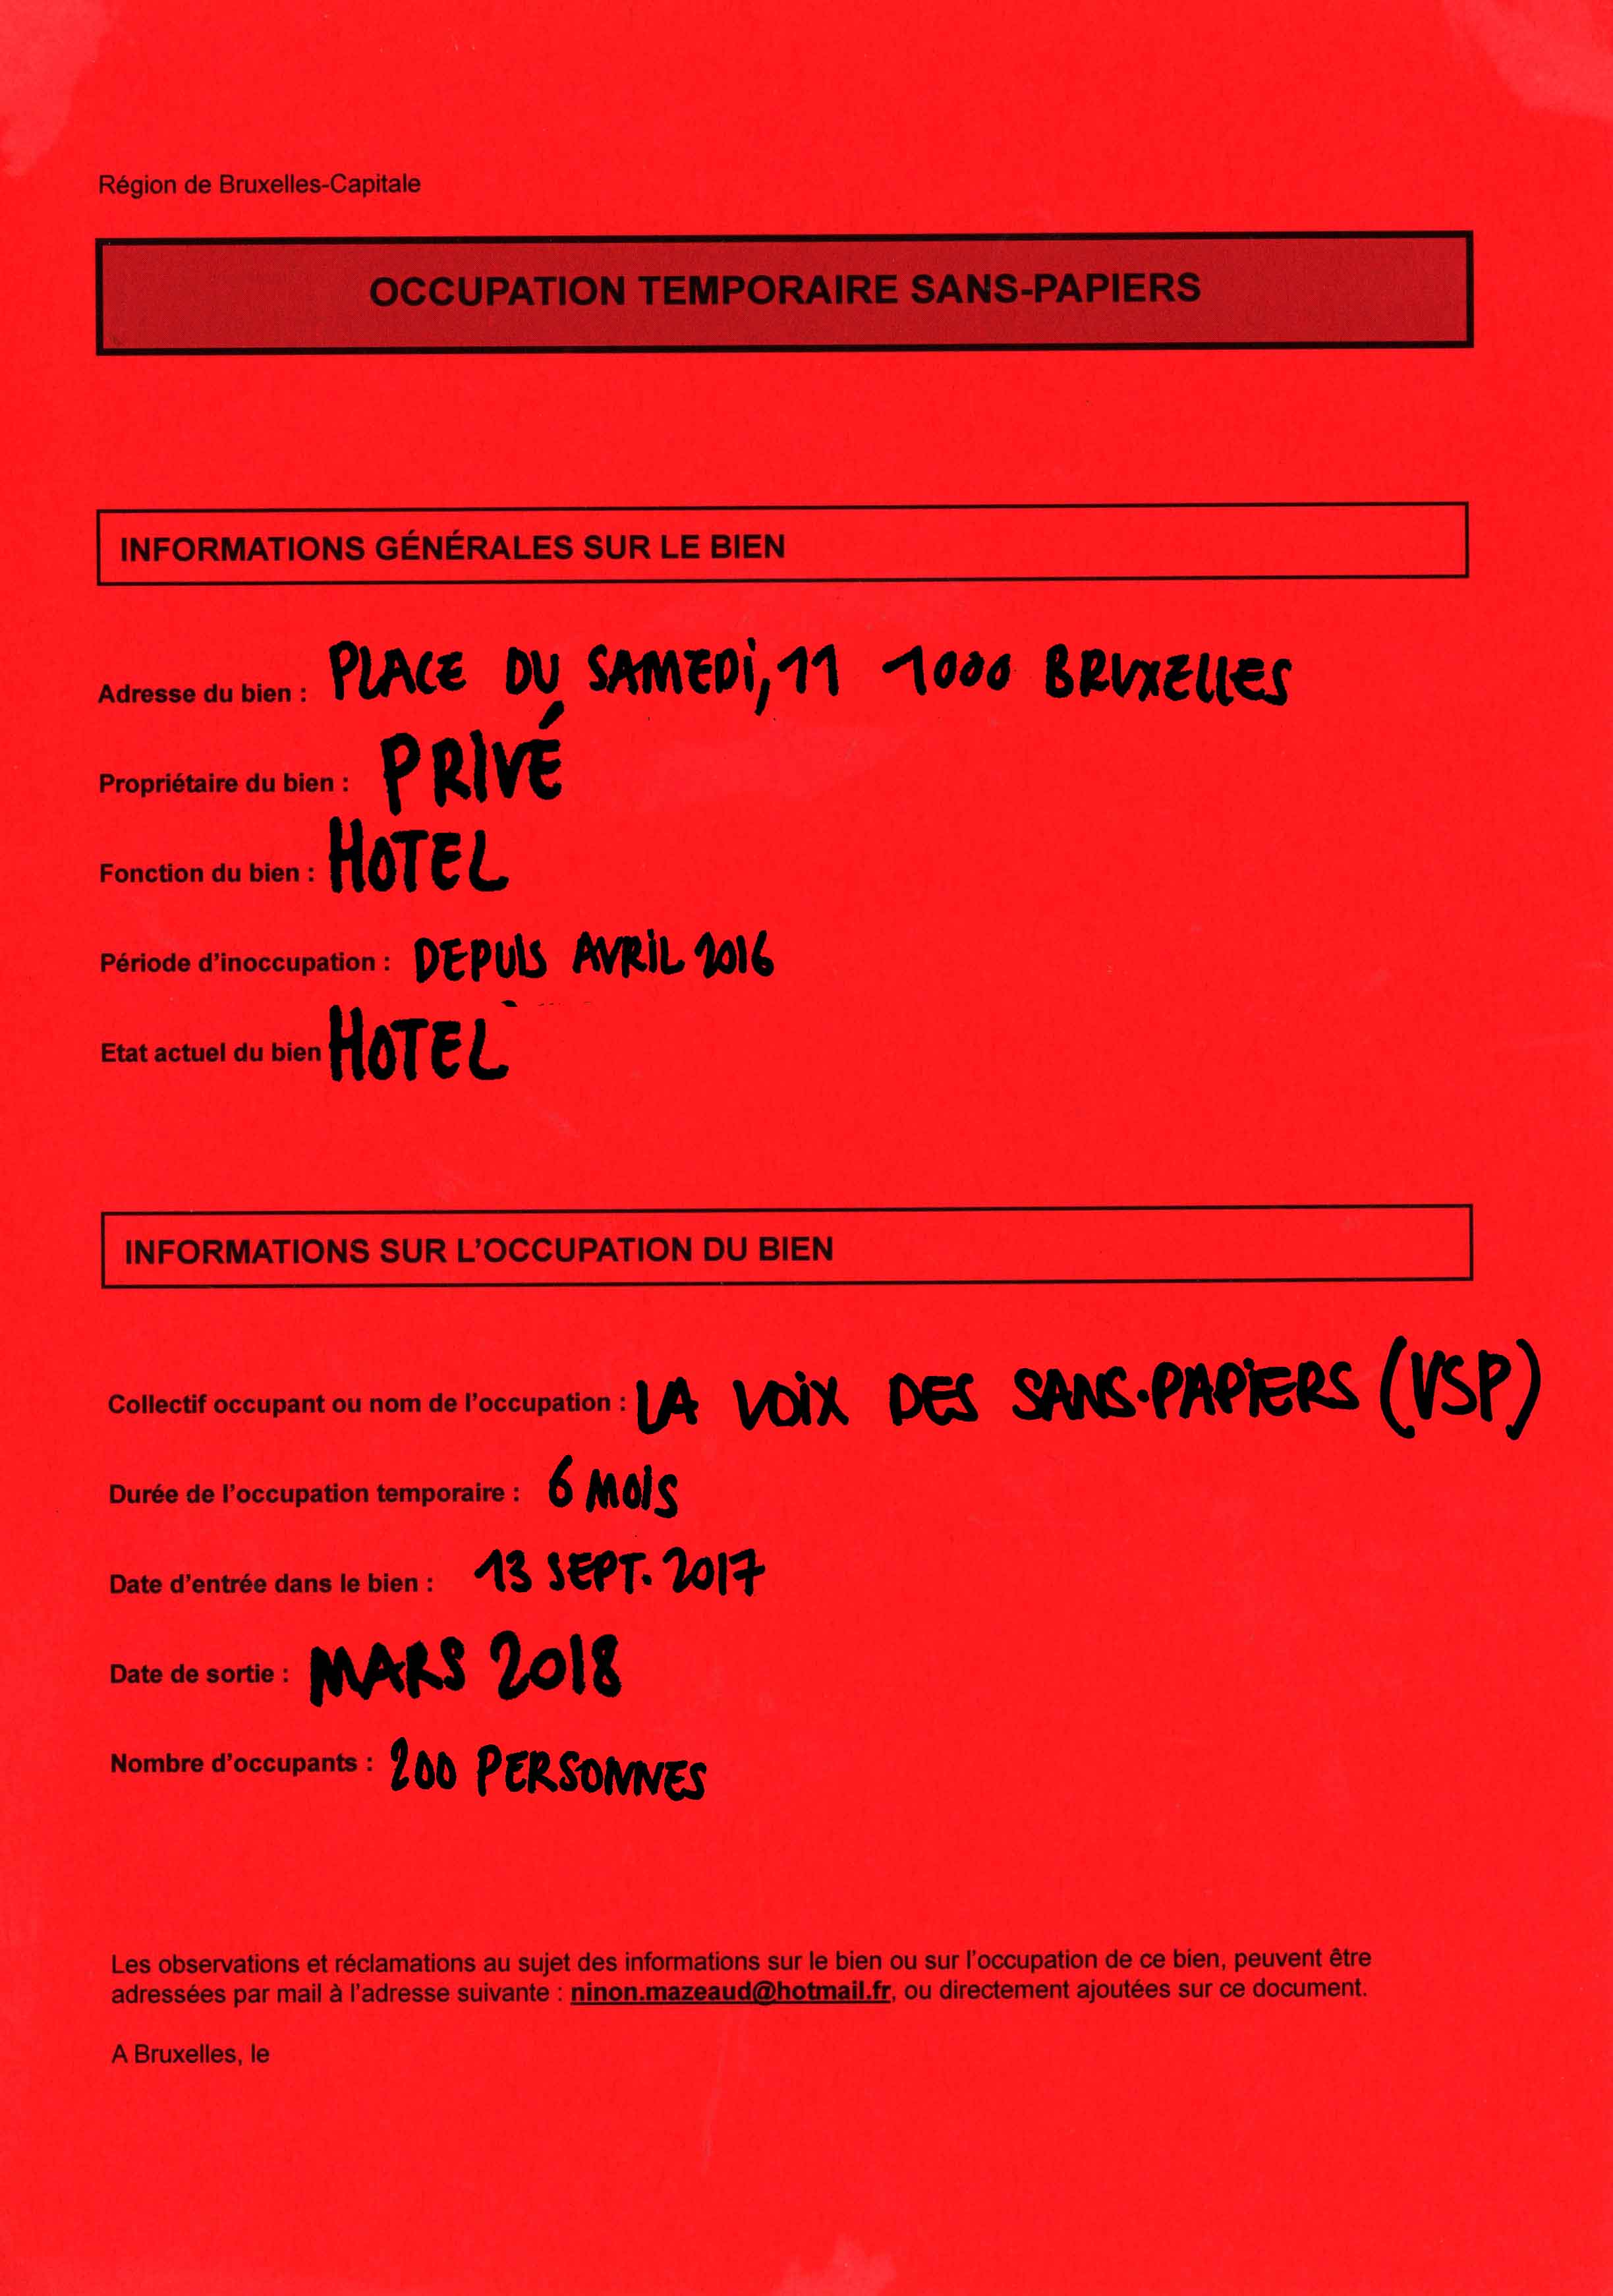 Région de Bruxelles-Capitale
OCCUPATION TEMPORAIRE SANS-PAPIERS
INFORMATIONS GÉNÉRALES SUR LE BIEN
Adresse du bien : PLACE DU SAMEDI, 11 1000 BRUXELLES
Propriétaire du bien : PRIVÉ
Fonction du bien : HOTEL
Période d'inoccupation : DEPUIS AVRIL 2016
Etat actuel du bien HOTEL
INFORMATIONS SUR L'OCCUPATION DU BIEN
Collectif occupant ou nom de l'occupation : LA VOIX DES SANS-PAPIERS (VSP)
Durée de l'occupation temporaire : 6 MOIS
Date d'entrée dans le bien : 13 SEPT. 2017
Date de sortie : MARS 2018
Nombre d'occupants : 200 PERSONNES
Les observations et réclamations au sujet des informations sur le bien ou sur l'occupation de ce bien, peuvent être
adressées par mail à l'adresse suivante : ninon.mazeaud@hotmail.fr, ou directement ajoutées sur ce document.
A Bruxelles, le